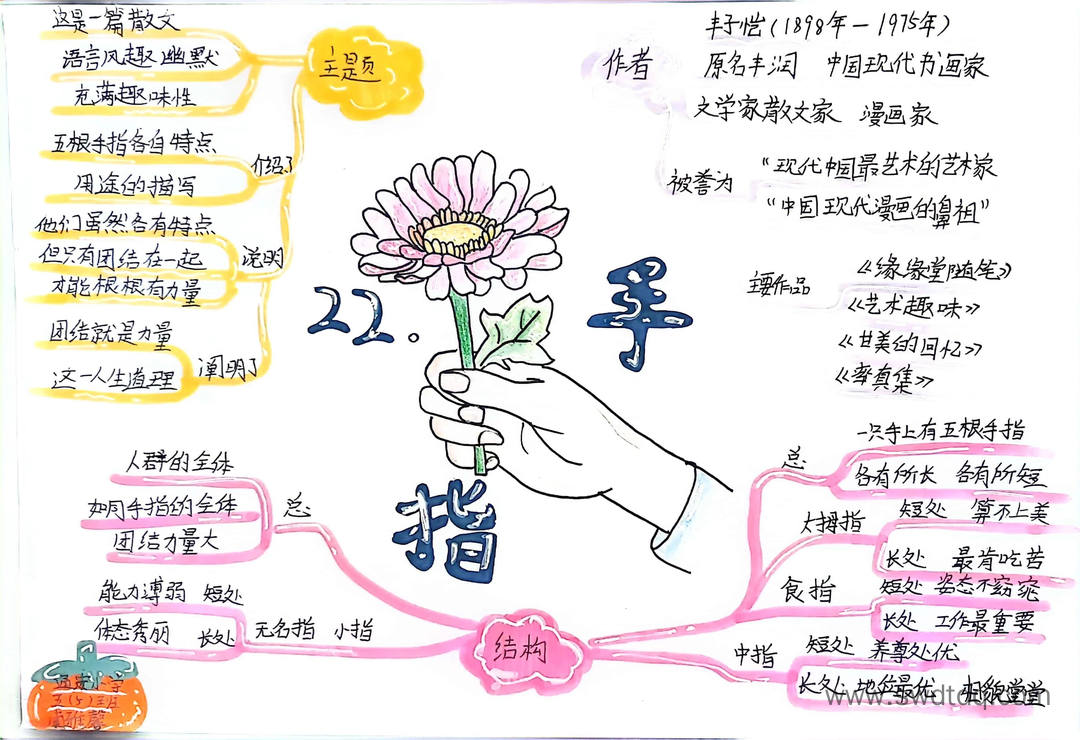 22. 手指
主题
这是一篇散文
语言风趣幽默
充满趣味性
介绍了
五根手指各自特点
用途的描写
说明
他们虽然各有特点
但只有团结在一起
才能根根有力量
阐明了
团结就是力量
这一人生道理
作者
丰子恺(1898年—1975年)
原名丰润 中国现代书画家
文学家散文家 漫画家
被誉为
“现代中国最艺术的艺术家
“中国现代漫画的鼻祖”
主要作品
《缘缘堂随笔》
《艺术趣味》
《甘美的回忆》
《率真集》
结构
总
一只手上有五根手指
各有所长 各有所短
大拇指
短处 算不上美
长处 最肯吃苦
食指
短处 姿态不窈窕
长处 工作最重要
中指
短处 养尊处优
长处 地位最优 相貌堂堂
无名指 小指
能力薄弱 短处
体态秀丽 长处
总
人群的全体
如同手指的全体
团结力量大
小学